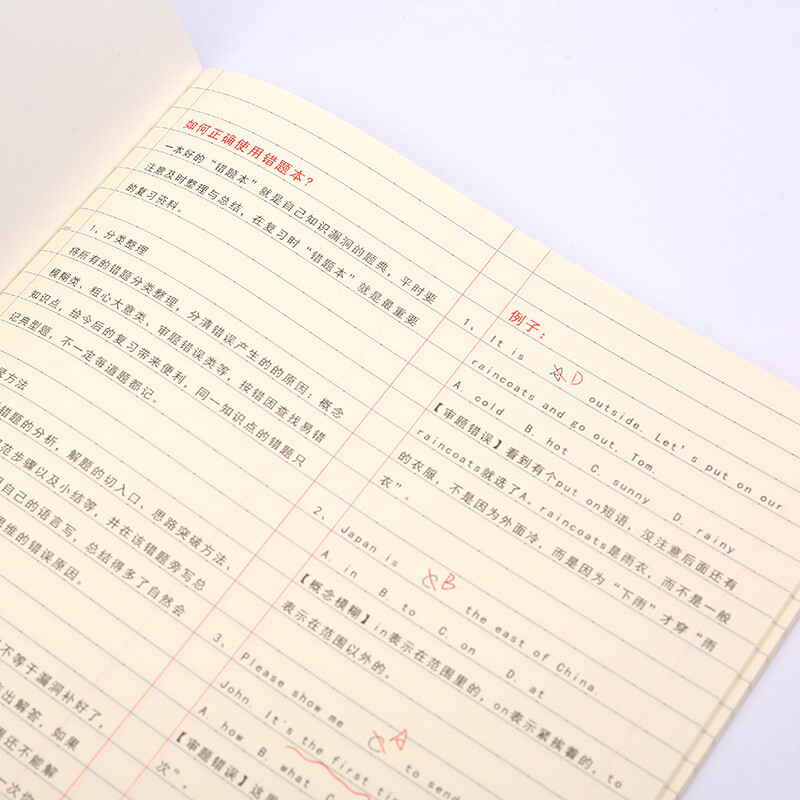 如何正确使用错题本？
一本好的“错题本”就是自己知识漏洞的题典，平时要
注意及时整理与总结，在复习时“错题本”就是最重要
的复习资料。
1、分类整理
将所有的错题分类整理，分清错误产生的的原因：概念
模糊类、粗心大意类、审题错误类等，按错因查找易错
知识点，给今后的复习带来便利，同一知识点的错题只
记典型题，不一定每道题都记。
方法
错题的分析，解题的切入口、思路突破方法、
范步骤以及小结等，并在该错题旁写总
自己的语言写，总结得多了自然会
思维的错误原因。
不等于漏洞补好了，
出解答，如果
还不能解
一次
例子：
1、It is A D outside. Let's put on our
raincoats and go out, Tom.
A .cold B. hot C. sunny D. rainy
【审题错误】看到有个put on短语，没注意后面还有
raincoats就选了A。raincoats是雨衣，而不是一般
的衣服，不是因为外面冷，而是因为“下雨”才穿“雨
衣”。
2、Japan is C B the east of China.
A. in B. to C. on D. at
【概念模糊】in表示在范围里的，on表示紧挨着的，to
表示在范围以外的。
3、Please show me C A to send
John. It's the first
A. how B. what C
【审题错误】这里
次”，